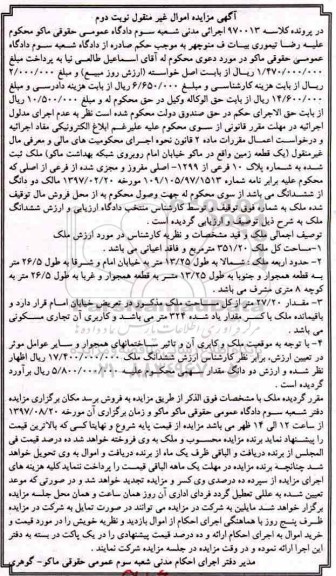 آگهی مزایده اموال غیر منقول نوبت دوم
در پرونده کلاسه ۹۷۰۰۱۳ اجرائی مدنی شعبه سوم دادگاه عمومی حقوقی ماکو محکوم
علیه رضا تیموری بیات ف منوچهر به موجب حکم صادره از دادگاه شعبه سوم دادگاه
عمومی حقوقی ماکو در مورد دعوی محکوم له آقای اسماعیل طالعی نیا به پرداخت مبلغ
۱/۴۷۰/۰۰۰/۰۰۰ ریال از بابت اصل خواسته (ارزش روز مبیع) و مبلغ ۲/۰۰۰/۰۰۰
ریال از بابت هزینه کارشناسی و مبلغ ۶/۶۵۰/۰۰۰ ریال از بابت هزینه دادرسی و مبلغ
۱۴/۶۰۰/۰۰۰ ریال از بابت حق الوکاله وکیل در حق محکوم له و مبلغ ۱۰/۵۰۰/۰۰۰ ریال
از بابت حق الاجرای حکم در حق صندوق دولت محکوم شده است نظر به عدم اجرای مدلول
اجرائیه در مهلت مقرر قانونی از سوی محکوم علیه علیرغم ابلاغ الکترونیکی مفاد اجرائیه
و درخواست اعمال مقررات ماده ۲ قانون نحوه اجرای محکومیت های مالی و معرفی مال
غیرمنقول (یک قطعه زمین واقع در ماکو خیابان امام روبروی شبکه بهداشت ماکو) ملک ثبت
شده به شماره پلاک ۱۰ فرعی از ۱۲۹۹- اصلی مفروز و مجزی شده فرعی از اصلی که
محکوم علیه برابر نامه شماره ۱۰۹/۱۰۵/۹۷/۱۵۱۳ مورخه ۱۳۹۷/۰۲/۲۰ مالک دو دانگ
از ششدانگ می باشد از سوی محکوم له جهت وصول محکوم به از محل فروش مال توقیف
شده ملک به شماره فوق توقیف و توسط کارشناس منتخب دادگاه ارزیابی و ارزش ششدانگ
ملک به شرح ذیل توصیف و ارزیابی گردیده است.
توصیف اجمالی ملک و قید مشخصات و نظریه کارشناس در مورد ارزش ملک
۱-مساحت کل ملک ۳۵۱/۲۰ مترمربع و فاقد اعیانی می باشد.
۲- حدود اربعه ملک: شمالا به طول ۱۳/۲۵ متر به خیابان امام و شرقا به طول ۲۶/۵ متر
به قطعه همجوار و جنوبا به طول ۱۳/۲۵ متر به قطعه همجوار و غربا به طول ۲۶/۵ متر به
کوچه ۸ متری مشرف می باشد.
۳- مقدار ۲۷/۲۰ متر از کل مساحت ملک مذکور در تعریض خیابان امام قرار دارد و
باقیمانده ملک با کسر مقدار یاد شده ۳۲۴ متر می باشد و کاربری آن تجاری مسکونی
می باشد.
۴- با توجه به موقعیت ملک و کابری آن و تاثیر ساختمانهای همجوار و سایر عوامل موثر
در تعیین ارزش، برابر نظر کارشناس ارزش ششدانگ ملک ۱۷/۴۰۰/۰۰۰/۰۰۰ ریال اظهار
نظر شده و ارزش دو دانگ مقدار سهمی محکوم علیه ۵/۸۰۰/۰۰۰/۰۰۰ ریال برآورد
گردیده است.
مقرر گردیده ملک با مشخصات فوق الذکر از طریق مزایده به فروش برسد مکان برگزاری مزایده
دفتر شعبه سوم دادگاه عمومی حقوقی ماکو و زمان برگزاری آن مورخه ۱۳۹۷/۰۸/۲۰
از ساعت ۱۲ الی ۱۴ ظهر می باشد مزایده از قیمت پایه شروع و نهایتا کسی که بالاترین قیمت
را پیشنهاد نماید برنده مزایده محسوب و ملک به وی فروخته خواهد شد ده درصد قیمت فی
المجلس از برنده دریافت و الباقی ظرف یک ماه از برنده دریافت و اموال به وی تحویل خواهد
شد چنانچه برنده مزایده در مهلت یک ماهه الباقی قیمت را پرداخت ننماید کلیه هزینه های
اجرای مزایده از سپرده ده درصدی وی کسر و مزایده تجدید خواهد شد و در صورتی که موعد
تعیین شده به عللی تعطیل گردد فردای اداری آن روز همان ساعت و همان محل جلسه مزایده
برگزار خواهد شد مایلین به شرکت در مزایده می توانند در صورت تمایل به شرکت در مزایده
ظرف پنج روز با هماهنگی اجرای احکام از اموال بازدید و نظریه خویش را در مورد قیمت و
خرید اموال به اجرای احکام ارائه و ده درصد قیمت پیشنهادی را در یک پاکت در بسته به دفتر
این اجرا ارائه نموده و در وقت مزایده در جلسه مزایده شرکت نمایند.
مدیر دفتر اجرای احکام مدنی شعبه سوم عمومی حقوقی ماکو- گوهری